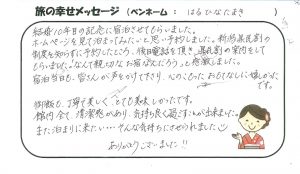 旅の幸せメッセージ（ペンネーム：はるひなたまき）
結婚10年目の記念に宿泊させてもらいました。
ホームページを見て泊まってみたいと思い予約しました。新潟県民割の
制度を知らずに予約したところ、後日電話を頂き、県民割の案内をして
もらいました。"なんて親切なお宿なんだろう"と感激しました。
宿泊当日も、皆さんが声をかけて下さり、心のこもったおもてなしに嬉しかった
です。
御飯も、丁寧で美しく、とても美味しかったです。
館内全て、清潔感があり、気持ち良く過ごすことが出来ました。
また泊まりに来たい…そんな気持ちにさせられました
ありがとうございました!!